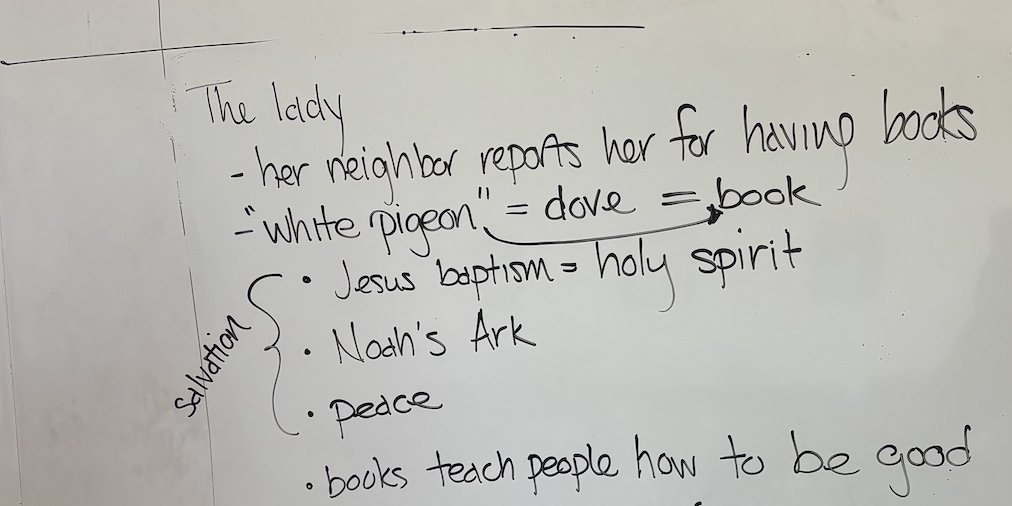 The lady
- her neighbor reports her for having books
- "white pigeon" = dove = book
• Jesus baptism = holy spirit
• Noah's Ark
• peace
Salvation
• books teach people how to be good